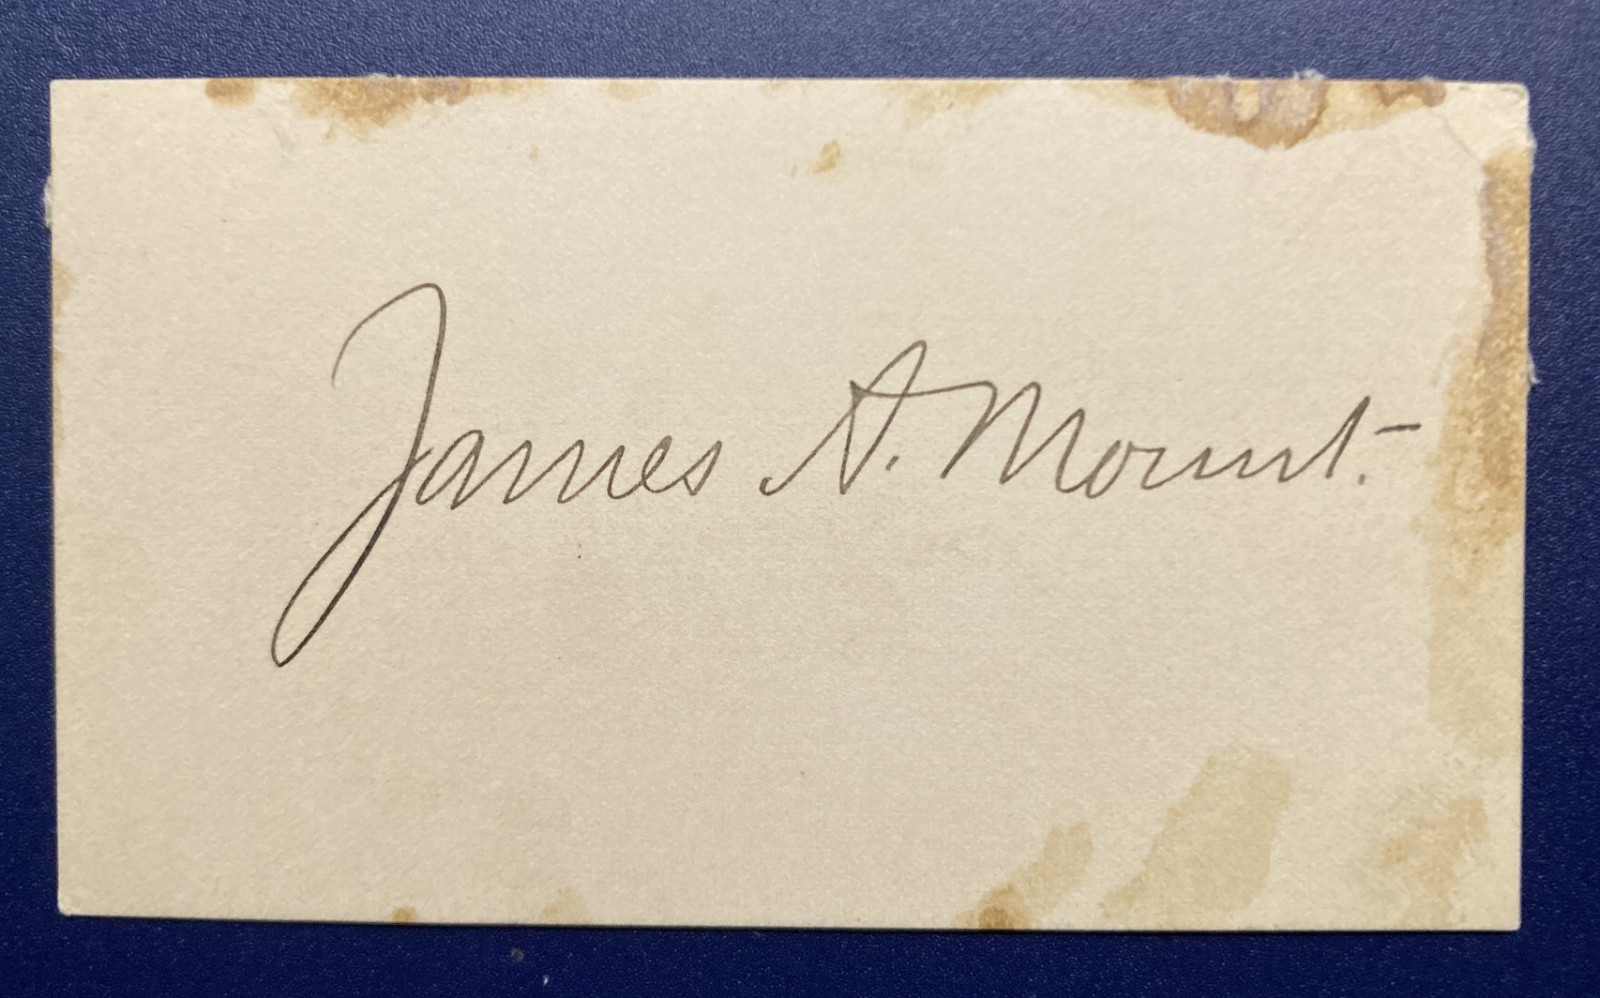 James A. Mount.